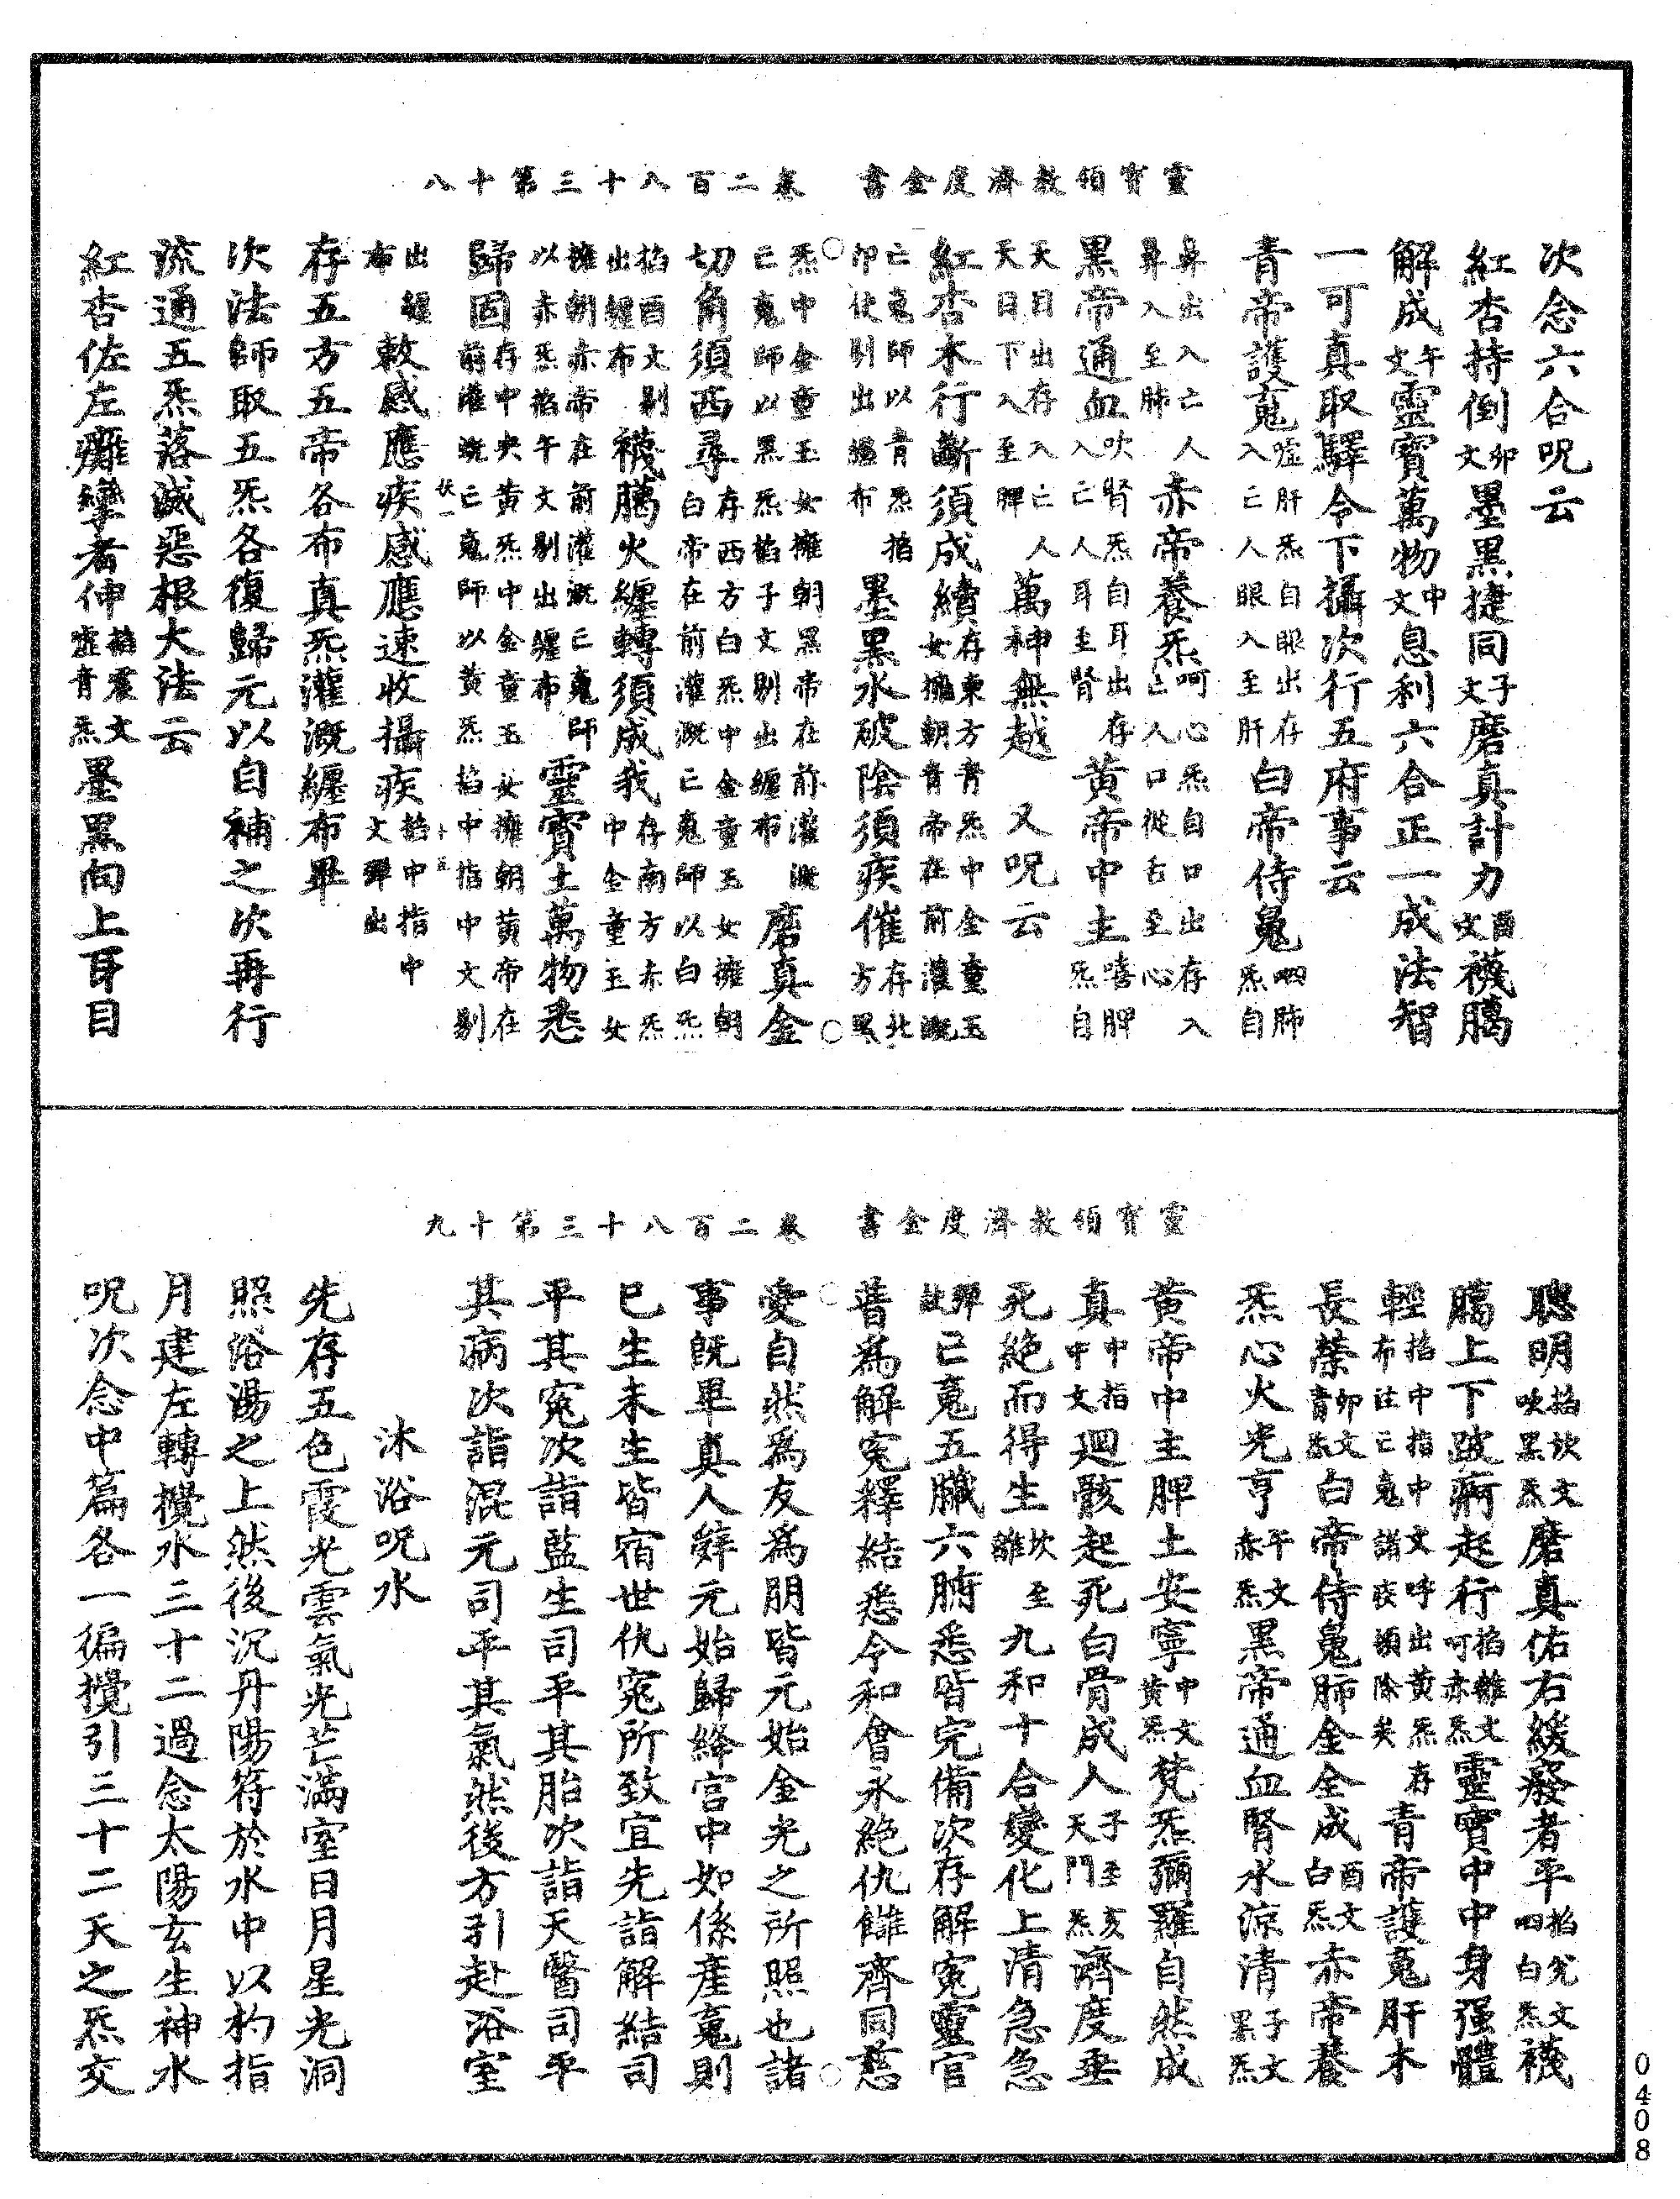 靈寶領教濟度金書　卷二百八十三第十八
次念六合呪云
紅杏持倒卯文墨黑捷同子文磨真計力酉文襪𦡱
解成午文靈寶萬物中文息利六合正一成法智
一可真取驛令下攝次行五府事云
青帝護䰟噓肝炁自眼出存入亡人眼入至肝白帝侍䰟呬肺炁自
鼻出入亡人鼻入至肺赤帝養炁呵心炁自口出存入亡人口從舌至心
黑帝通血吹腎炁自耳出存入亡人耳至腎黃帝中主嘻脾炁自
天目出存入亡人天目下入至脾萬神無越　又呪云
紅杏木行斷須成續存東方青炁中金童玉女擁朝青帝在前灌溉
亡䰟師以青炁掐卯伩剔出纏布墨黑水破陰須疾催存北方黑
炁中金童玉女擁朝黑帝在前灌溉亡䰟師以黑炁掐子文剔出纏布磨真金
切角須西尋存西方白炁中金童玉女擁朝白帝在前灌溉亡䰟師以白炁
掐酉文剔出纏布襪𦡱火纏轉須成我存南方赤炁中金童玉女
擁朝赤帝在前灌溉亡䰟師以赤炁掐午文剔出纏布靈寶土萬物悉
歸固存中央黃炁中金童玉女擁朝黃帝在前灌溉亡䰟師以黃炁掐中指中文剔
出纏布敕感應疾感應速收攝疾掐中指中文彈出
存五方五帝各布真炁灌溉纏布畢
次法師取五炁各復歸元以自補之次再行
流通五炁落滅惡根大法云
紅杏佐左癱攣者伸掐震文噓青炁墨黑向上耳目
靈寶領教濟度金書　卷二百八十三第十九
聰明掐坎文吹黑炁磨真佑右緩癈者平掐兌文呬白炁襪
𦡱上下跛痾起行掐離文呵赤炁靈寶中中身强體
輕掐中指中文呼出黃炁布注亡䰟諸疾頓除矣存青帝護䰟肝木
長榮卯文青炁白帝侍䰟肺金全成酉文白炁赤帝養
炁心火光亨午文赤炁黑帝通血腎水涼清子文黑炁
黃帝中主脾土安寧中文黃炁梵炁彌羅自然成
真中指中文迴骸起死白骨成人子至亥天門炁濟度垂
死絕而得生坎至離九和十合變化上清急急
彈訣亡䰟五臟六腑悉皆完備次存解寃靈官
普爲解寃釋結悉令和會永絕仇讎齊同慈
愛自然爲友爲朋皆元始金光之所照也諸
事既畢真人辭元始歸絳宮中如係產䰟則
巳生未生皆宿世仇寃所致宜先詣解結司
平其寃次詣監生司平其胎次詣天醫司平
其病次詣混元司平其氣然後方引赴浴室
沐浴呪水
先存五色霞光雲氣光芒滿室日月星光洞
照浴湯之上然後沉丹陽符於水中以杓指
月建左轉攪水三十二過念太陽玄生神水
呪次念中篇各一徧攪引三十二天之炁交
0408